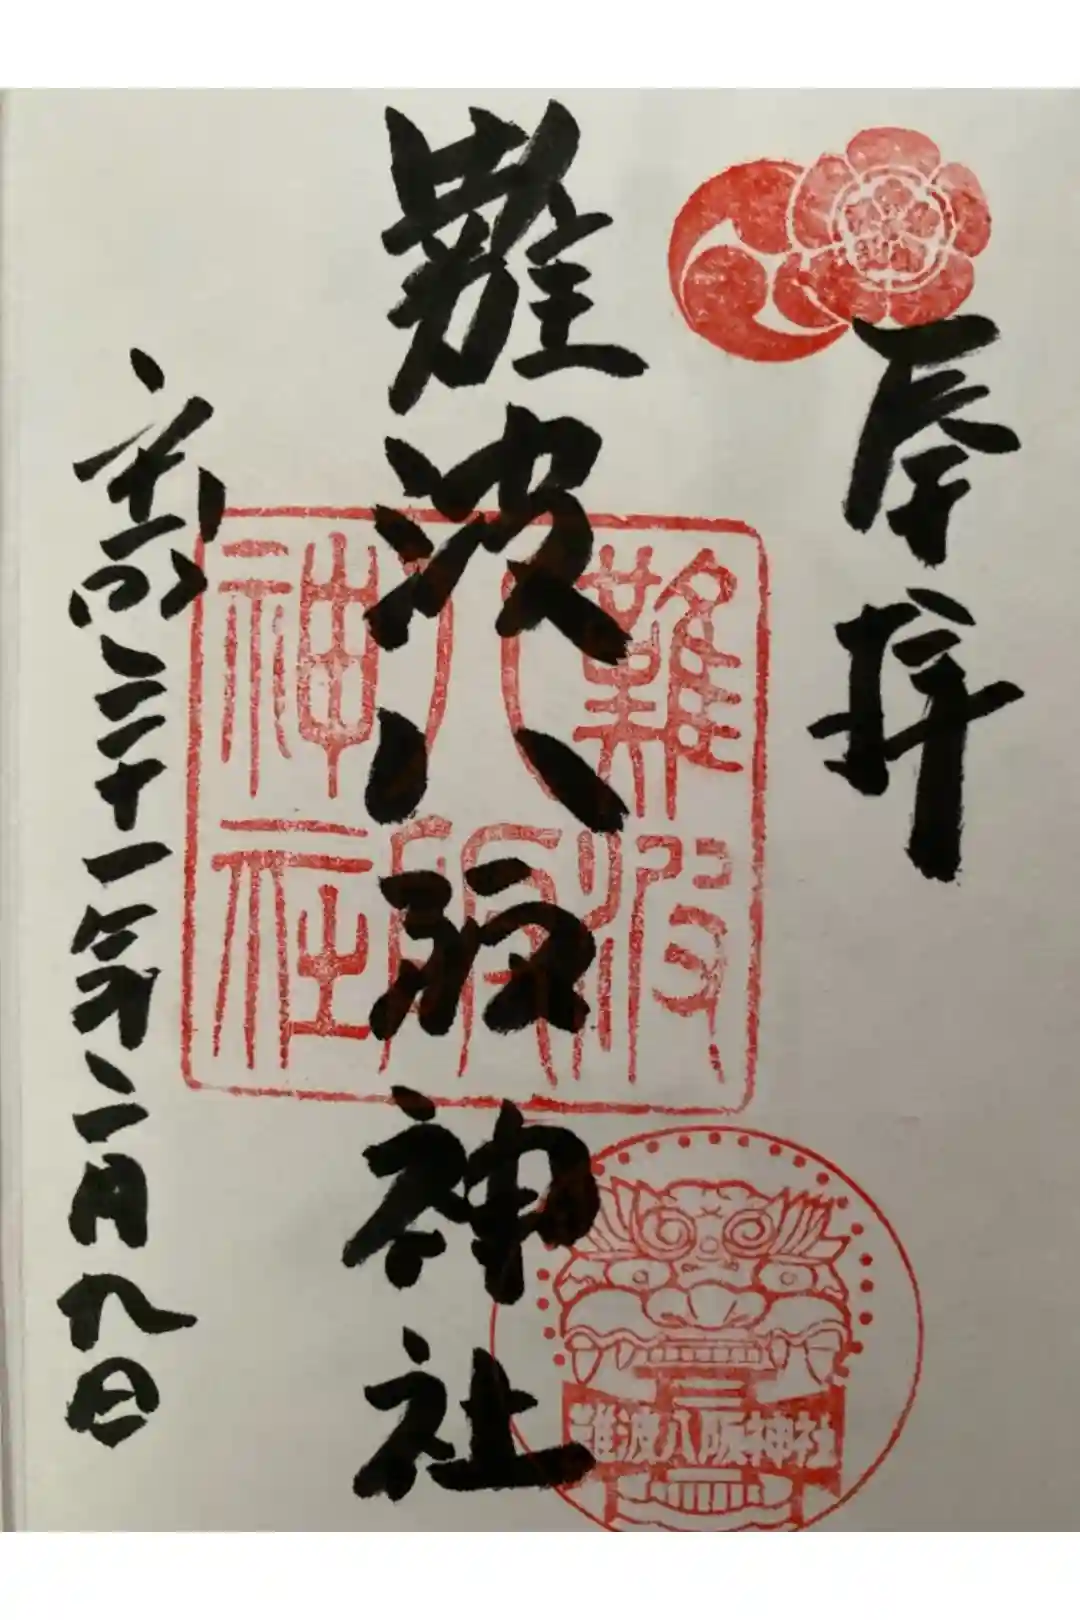 奉拝
難波八阪神社
平成三十一年二月九日
難波
八阪
神社
難波八阪神社